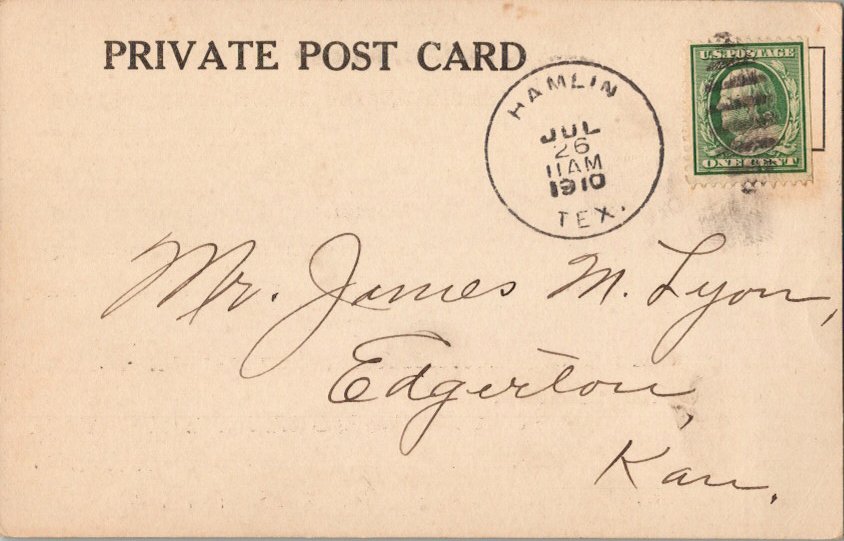 PRIVATE POST CARD
HAMLIN
JUL
26
11AM
1910
TEX.
U.S. POSTAGE
ONE CENT
Mr. James M. Lyon,
Edgerton,
Kan.